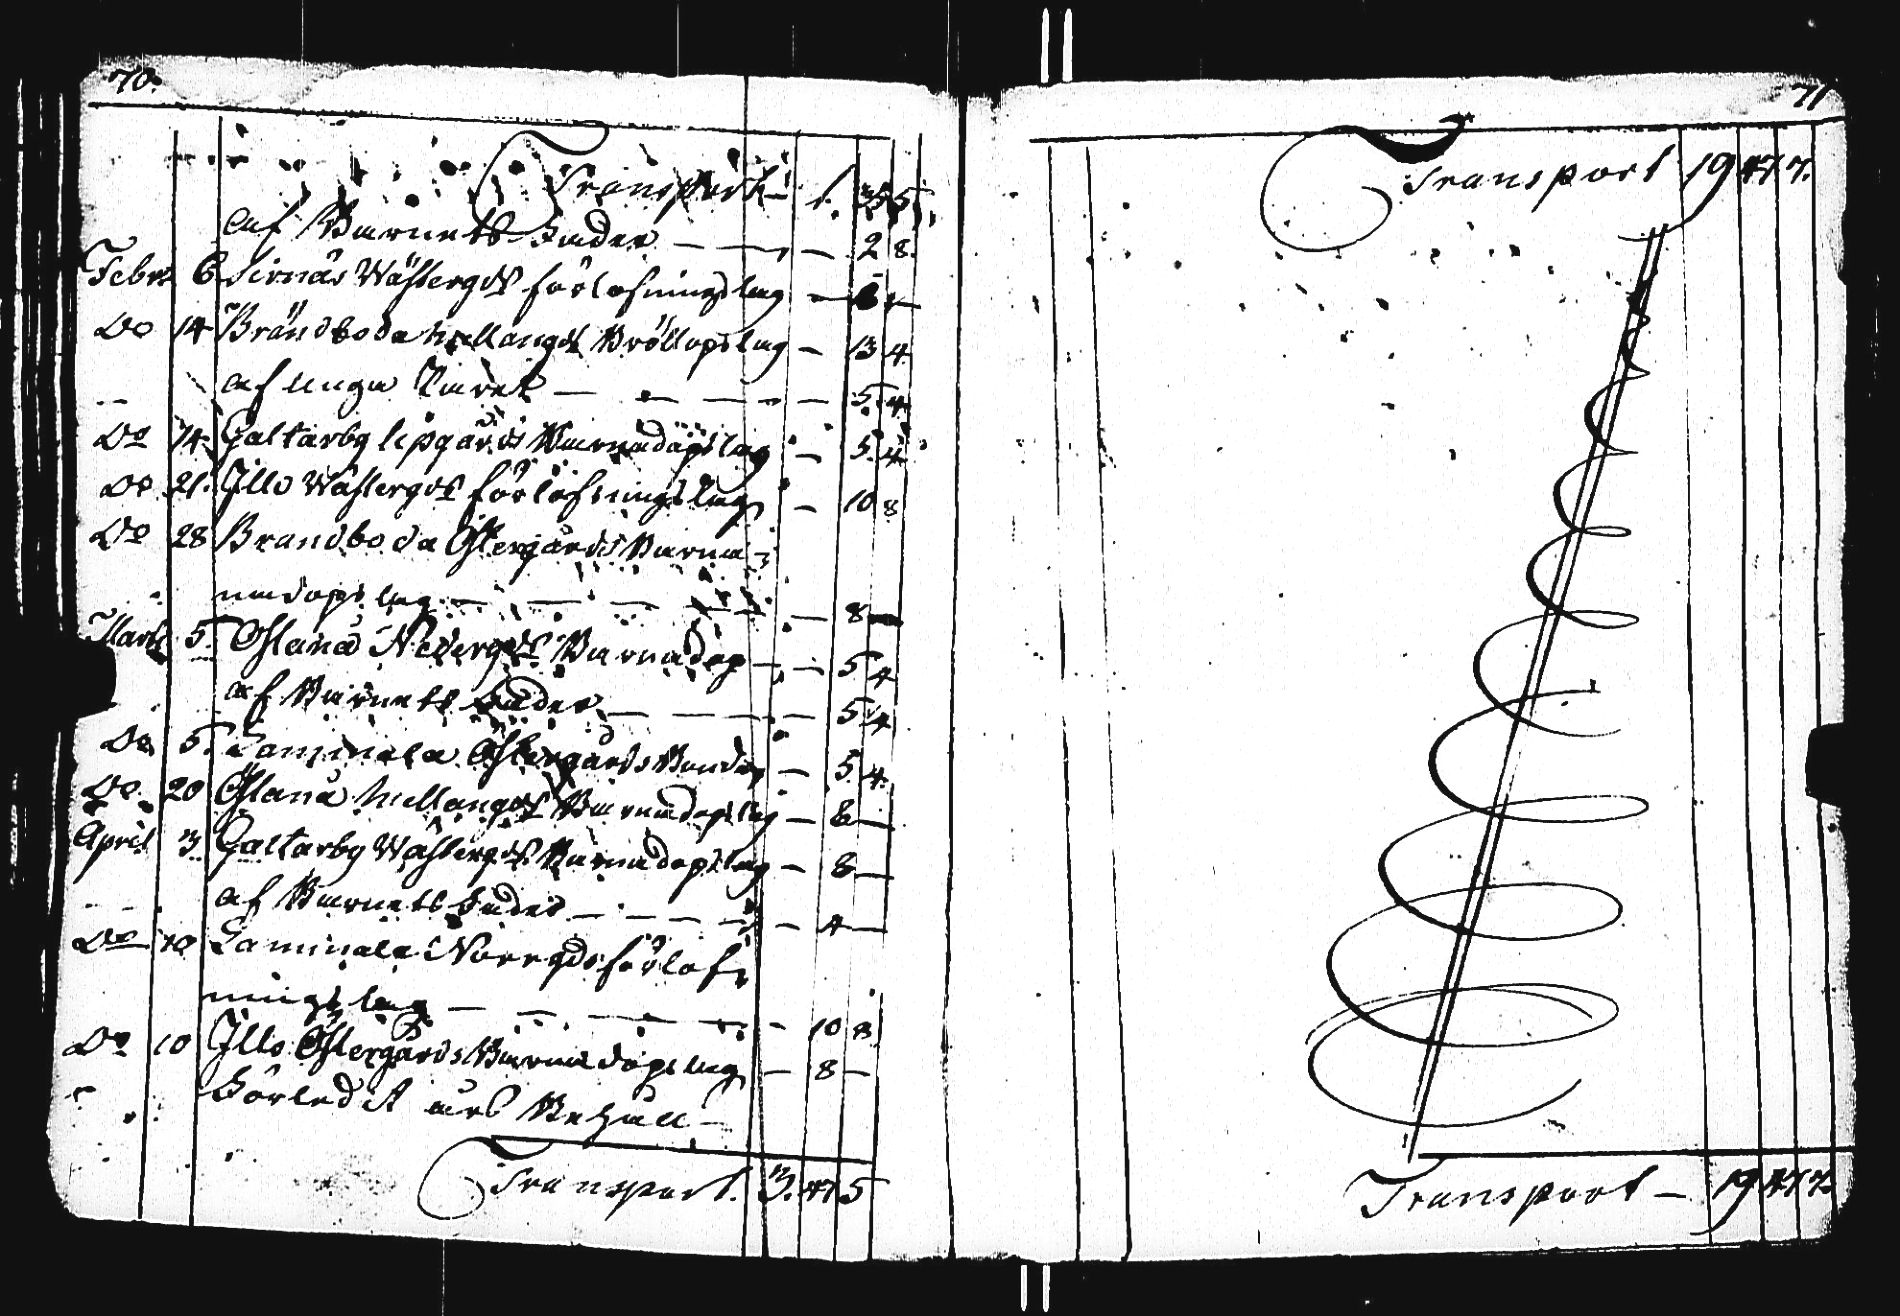 70.
Transport 1. 35 5.
af Barnets Fader — — — 2 8.
Febr. 6 Firnäs Wästergds förlofningslag —
Do 14 Brändboda Mellangds Bröllopslag — 13 4.
af unga Paret — — — — 5. 4.
Do 14. Galtarby lipgårds Barnadopslag — 5. 4.
Do 21. Illo Wästergds förlofningslag — 10 8
Do 28 Brandboda Östergårds Barna-
nadopslag — — — — 8 —
Marti 5. Ölanå Nedergds Barnadop — — 5 4
af Barnets Fader — — — — 5 4
Do 5. Laminala Östergårds — 5. 4.
Do. 20 Ölanå Mellangds Barnadopslag — 8 —
April 3. Galtarby Wästergds Barnadopslag — 8 —
af Barnets Fader — — — — 4 —
Do 10 Laminala Norrgds förlof-
ningslag — — — — — 10 8.
Do 10 Illo Östergårds Barnadopslag — 8 —
Transport. 3. 47 5
71
Transport 19 47 7.
Transport — 19 47 7.